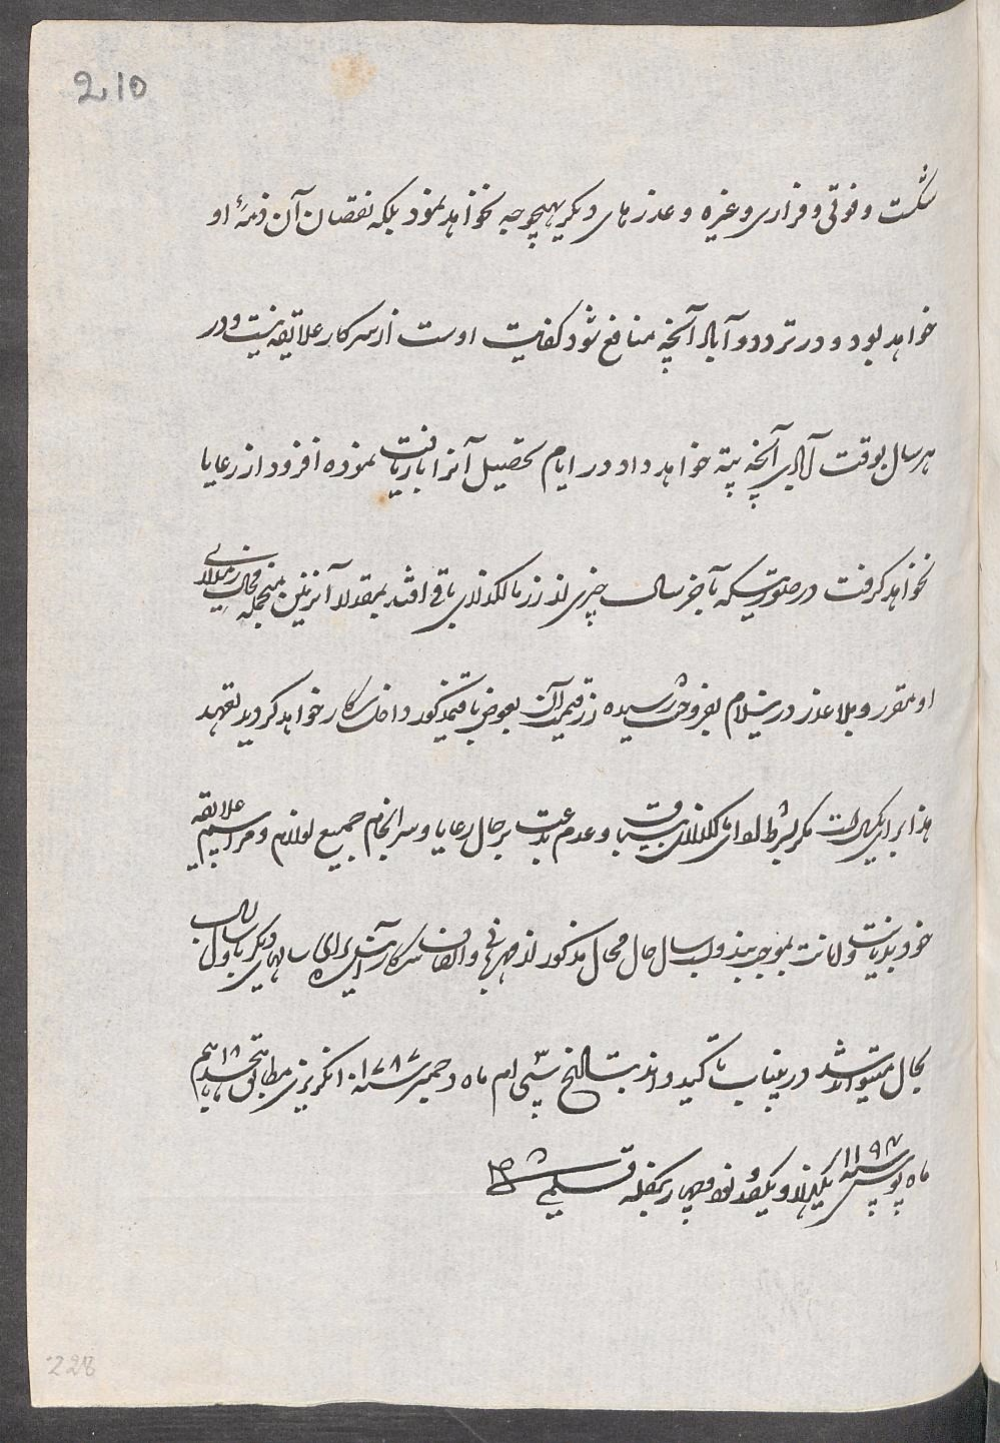 210
شکست و فوتی و فراری و غیره و عذرهای دیگر بهیچوجه نخواهد نمود بلکه نقصان آن ذمهٔ او
خواهد بود و در تردد و آباد آنچه منافع شود کفایت اوست از سرکار علاقه نیست و در
هر سال بوقت آنچه پته خواهد داد در ایام تحصیل آنرا بازیافت نموده افزود از رعایا
نخواهد گرفت در صورتیکه بآخر سال چیزی از زر مالگذاری باقی افتد بمقدار آن زمین بمنجمله محال زمینداری
او مقرر و بلا عذر در نیلام بفروخت رسیده زر قیمت آن بعوض باقی مذکور داخل سرکار خواهد گردید تعهد
هذا برای یکسال است مگر بشرط ادای مالگذاری و عدم بدعت بر حال رعایا و سرانجام جمیع لوازم و مراسم علاقه
خود بدیانت و امانت بموجب بندوبست سال حال محال مذکور از و سرکار برای سالهای دیگر
بحال میتواند شد درینباب تاکید دانند بتاریخ سی ام ماه دسمبر سنه ۱۷۸۷ انگریزی مطابق هجدهم ۱۸
ماه پوس سنه ۱۱۹۴ یکهزار و یکصد و نود و چهار بنگله قلمی شد
228